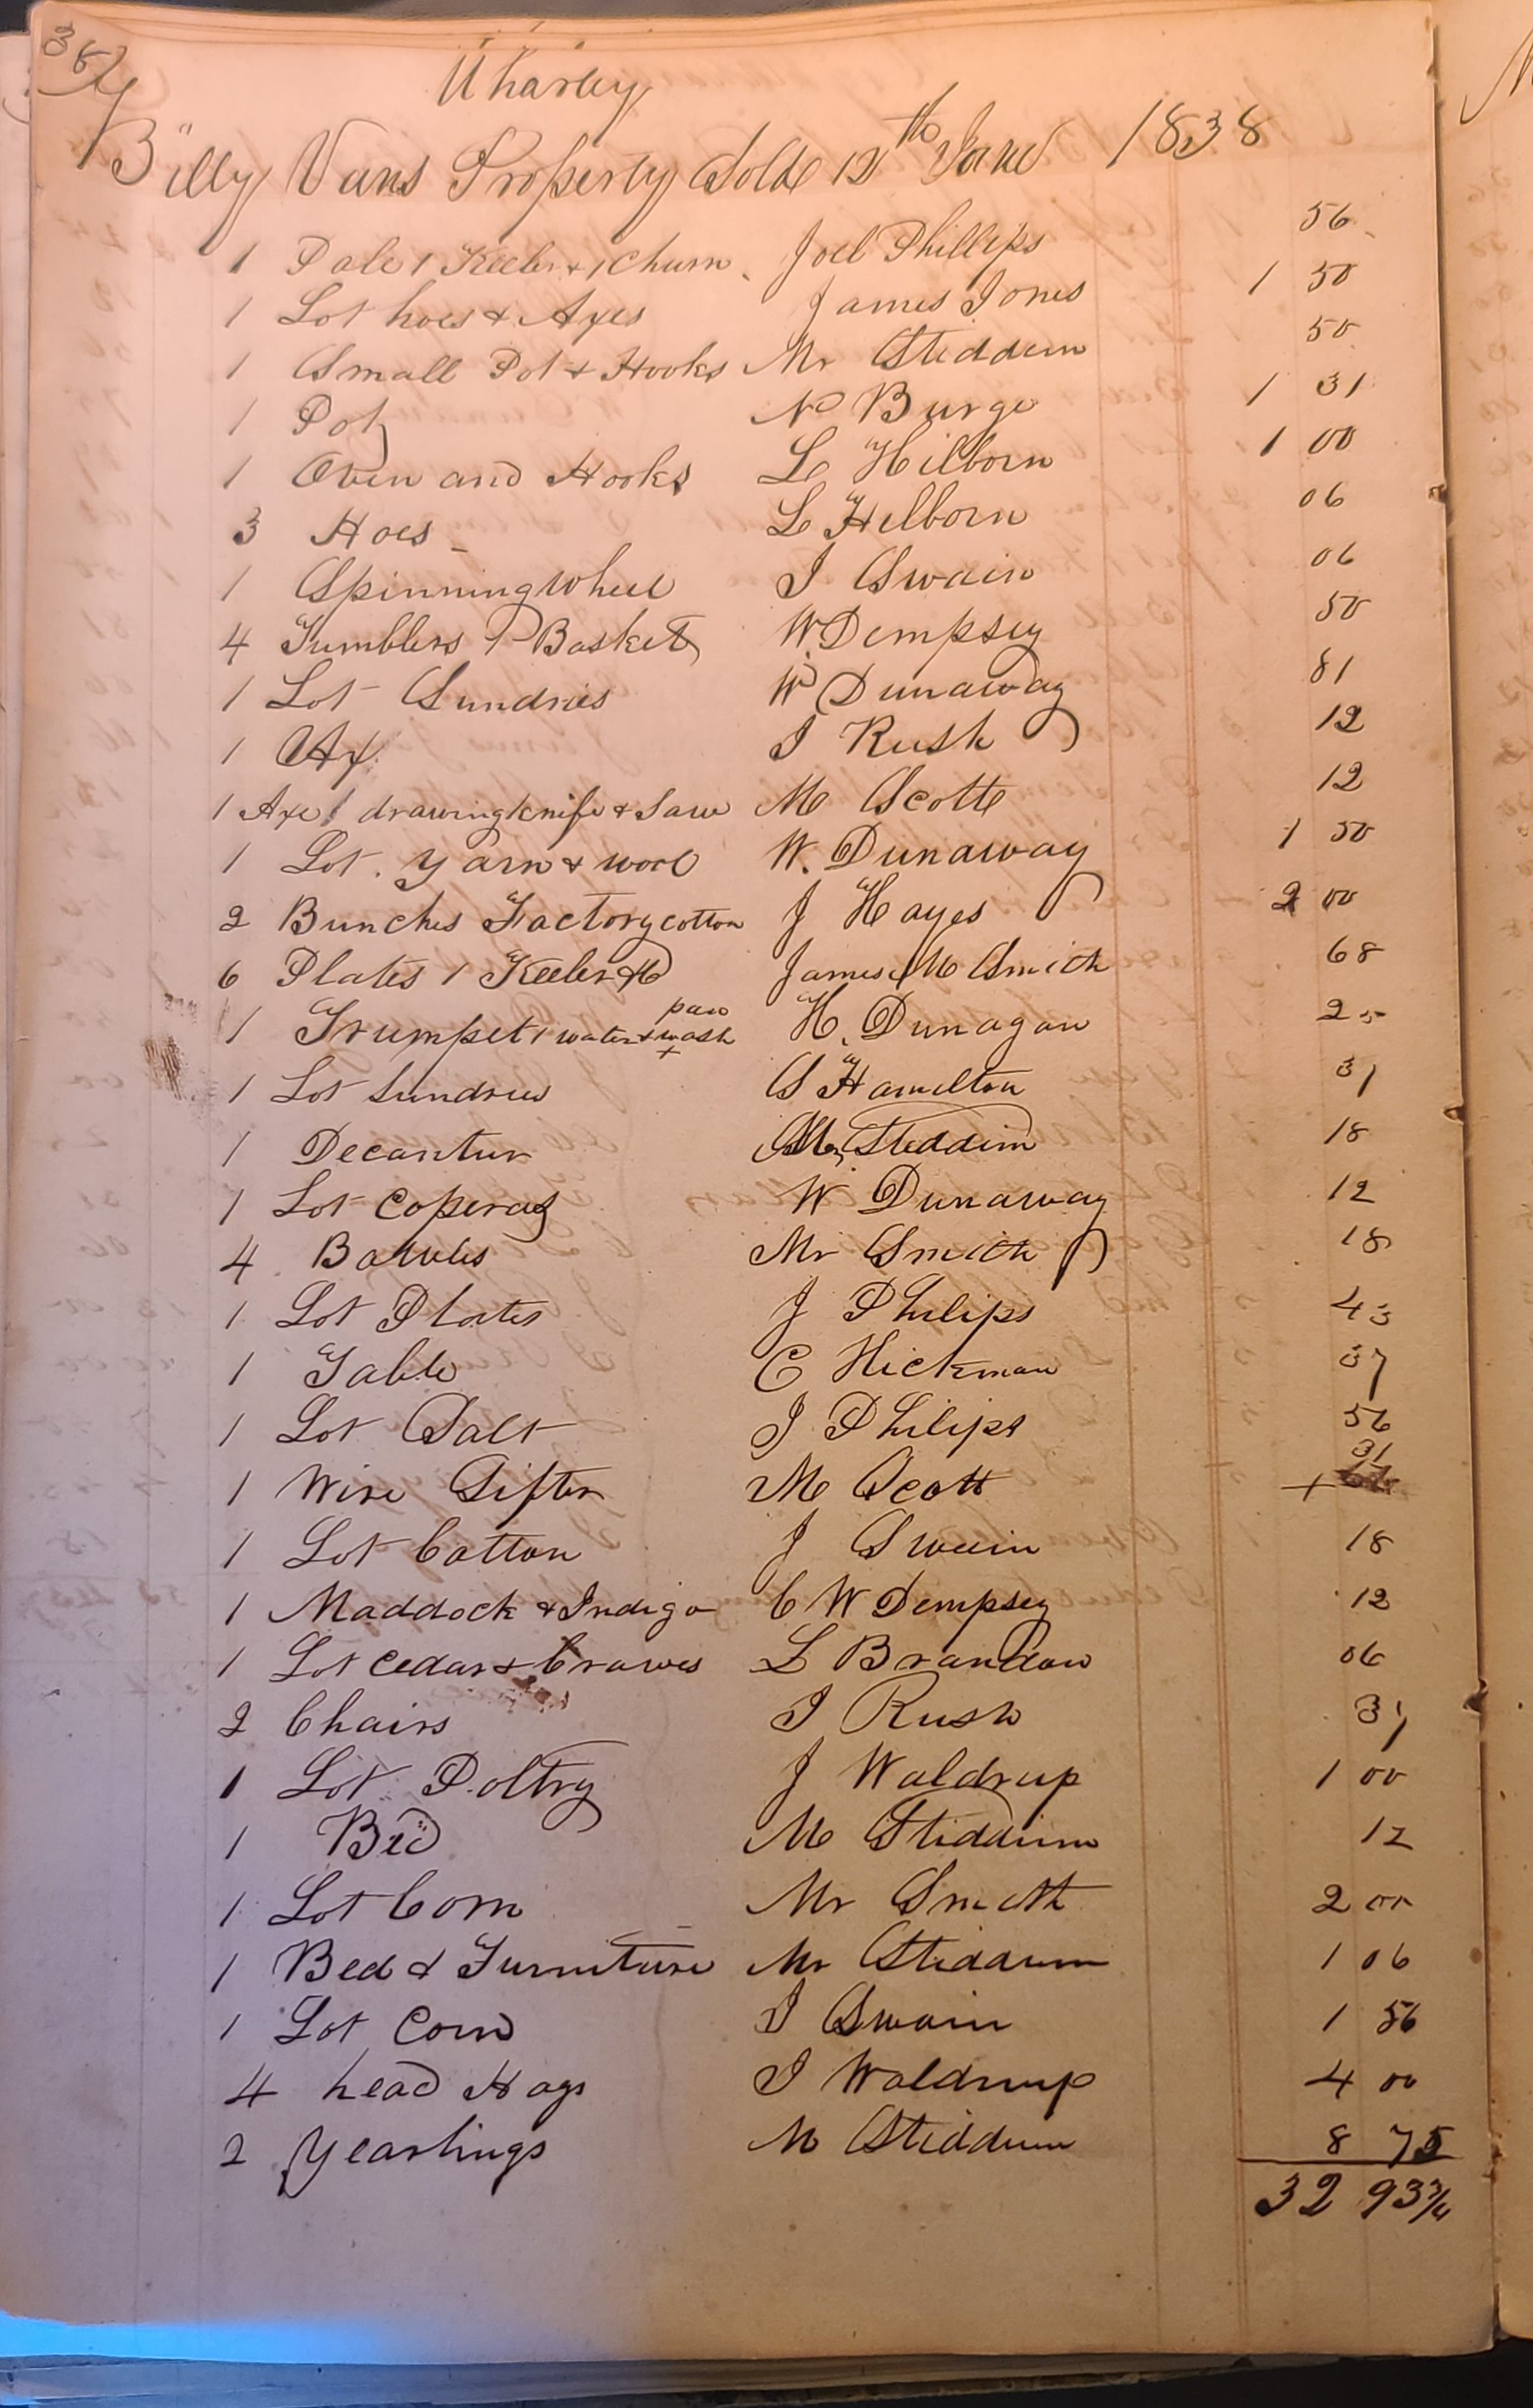 38
Uharley
Billy Vans Property Sold 12th June 1838
1 Pale 1 Keeler & 1 Churn Joel Phillips 56
1 Lot hoes & Axes James Jones 1 50
1 Small Pot & Hooks Mr Stiddum 50
1 Pot N Burge 1 31
1 Oven and Hooks L Hilborn 1 00
3 Hoes L Hilborn 06
1 Spinning Wheel I Swain 06
4 Tumblers 1 Basket W Dempsey 50
1 Lot Sundries W Dunaway 81
1 Ax I Rush 12
1 Axe 1 drawing knife & Saw M Scott 12
1 Lot Yarn & wool W. Dunaway 1 50
2 Bunches Factory cotton J Hayes 2 00
6 Plates 1 Keeler &c James M Smith 68
1 Trumpet 1 water & wash pan H. Dunagan 25
1 Lot Sundries S Hamilton 31
1 Decantur M Stiddum 18
1 Lot Coperas W Dunaway 12
4 Bowles Mr Smith 18
1 Lot Plates J Philips 43
1 Table C Hickman 37
1 Lot Salt J Philips 56
1 Wire Sifter M Scott + 31
1 Lot Cotton J Swain 18
1 Maddock & Indigo C W Dempsey 12
1 Lot Cedar & L Brandon 06
2 Chairs I Rush 31
1 Lot Poltry J Waldrup 1 00
1 Bed M Stiddum 12
1 Lot Corn Mr Smith 2 00
1 Bed & Furniture Mr Stiddum 1 06
1 Lot Corn I Swain 1 56
4 head Hogs I Waldrup 4 00
2 Yearlings M Stiddum 8 75
32 93 3/4